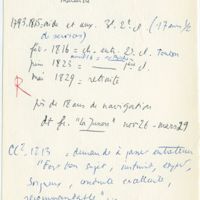 1793-1815, aide et aux. 3e. 2e cl (17 ans 1/2
de services)
fév - 1816 = ch. ent. 2e cl. Toulon
juin 1825
mai 1829 = retraite
R
près de 18 ans de navigation
dt fr. "La Junon" nov 26 - mars 29
CC2. 1813 = demande à passer entretenu
"Fort bon sujet, instruit, zélé,
soigneux, conduite excellente,
recommandable"